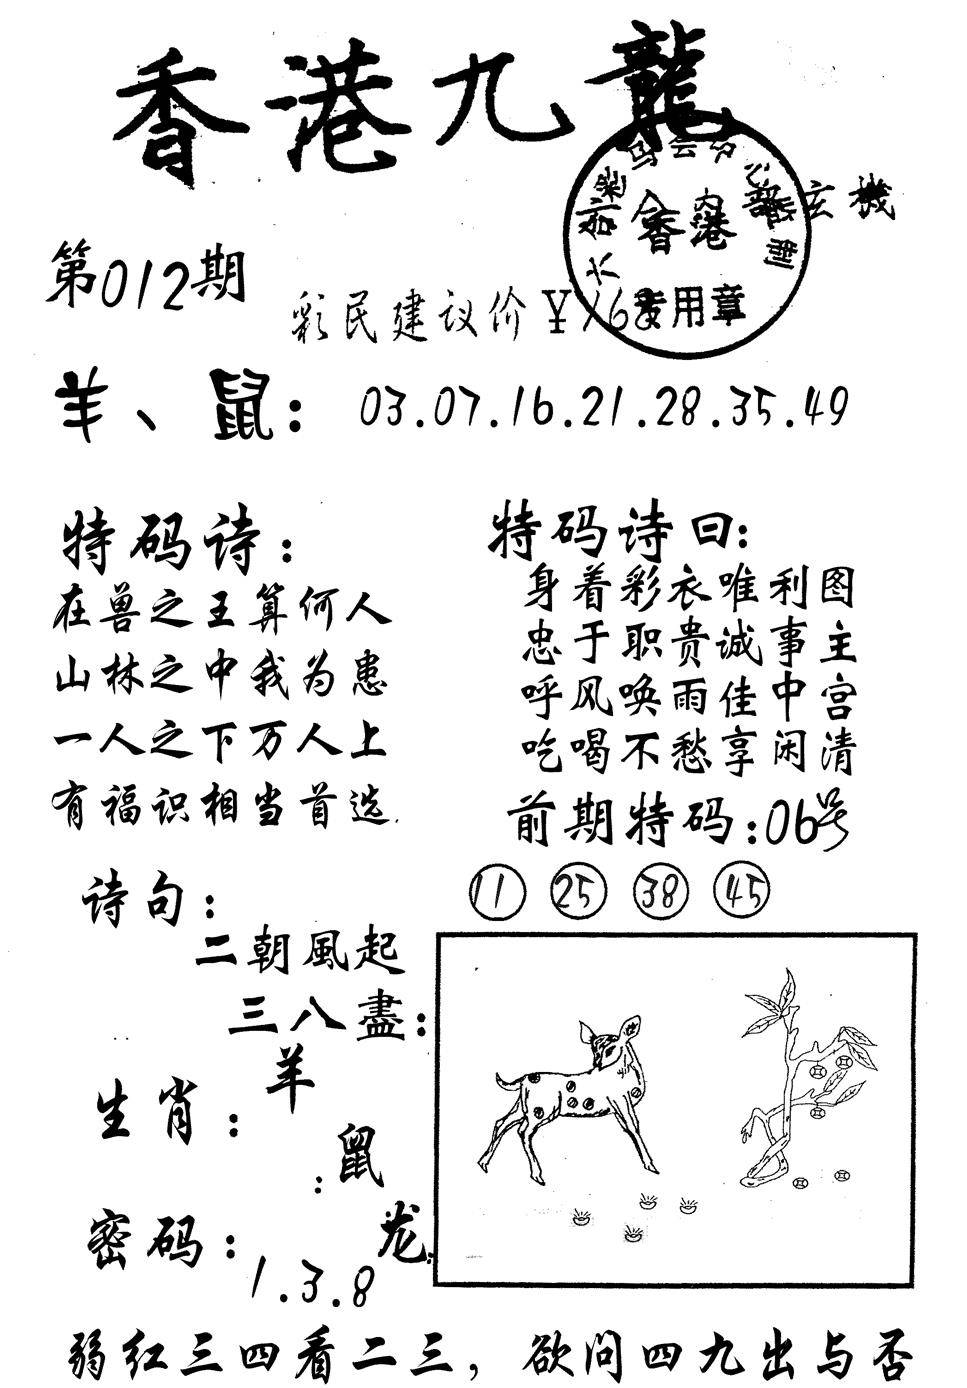 香港九龍
玄機
香港
专用章
第012期
彩民建议价¥168
羊、鼠：03.07.16.21.28.35.49
特码诗：
在兽之王算何人
山林之中我为患
一人之下万人上
有福识相当首选
特码诗曰：
身着彩衣唯利图
忠于职贵诚事主
呼风唤雨佳中宫
吃喝不愁享闲清
前期特码：06号
11 25 38 45
诗句：
二朝風起
三八盡：
生肖：
羊
：鼠
龙：
密码：
1.3.8
弱红三四看二三，欲问四九出与否